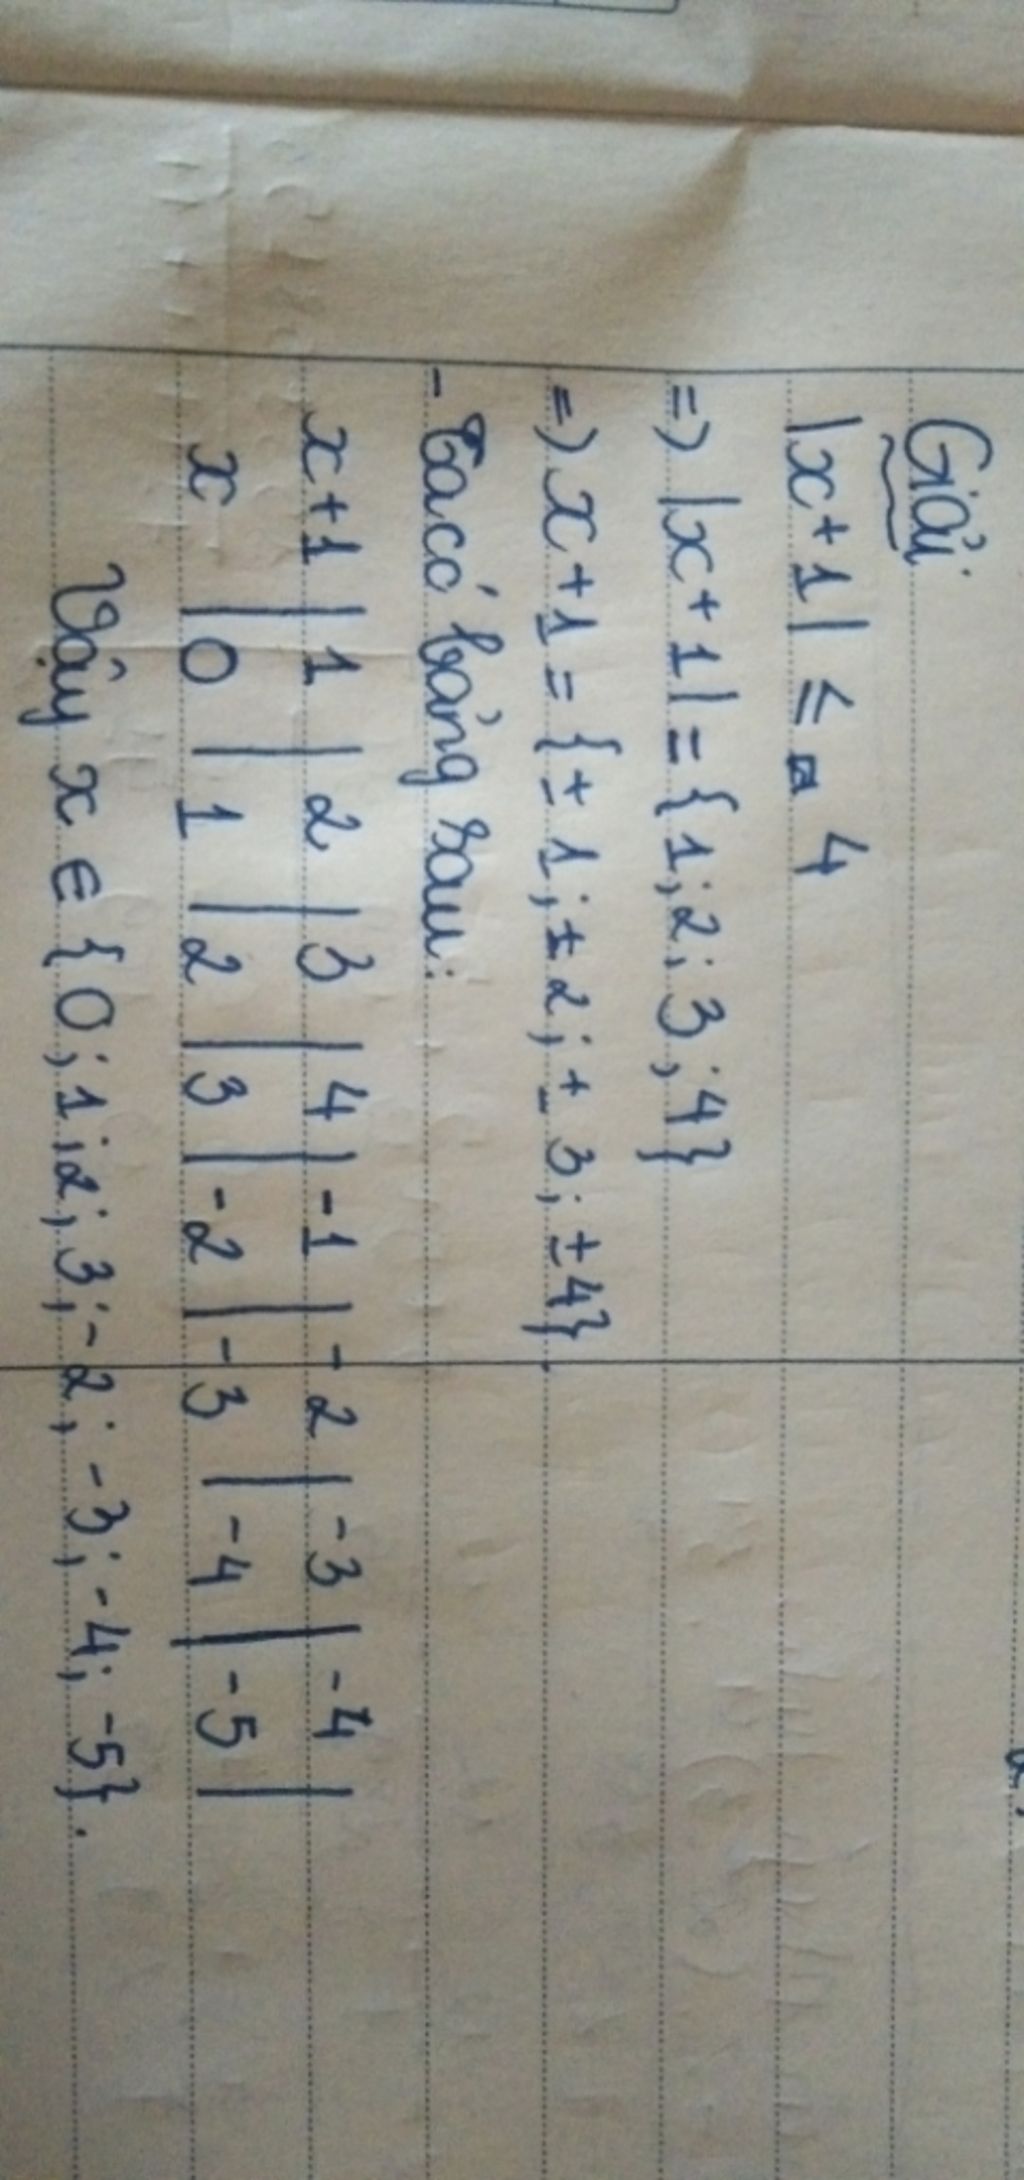 Giải
|x+1| ≤ 4
=> |x+1| = {1; 2; 3; 4}
=> x+1 = {±1; ±2; ±3; ±4}.
- Ta có bảng sau:
x+1 | 1 | 2 | 3 | 4 | -1 | -2 | -3 | -4 |
x | 0 | 1 | 2 | 3 | -2 | -3 | -4 | -5 |
Vậy x ∈ {0; 1; 2; 3; -2; -3; -4; -5}.